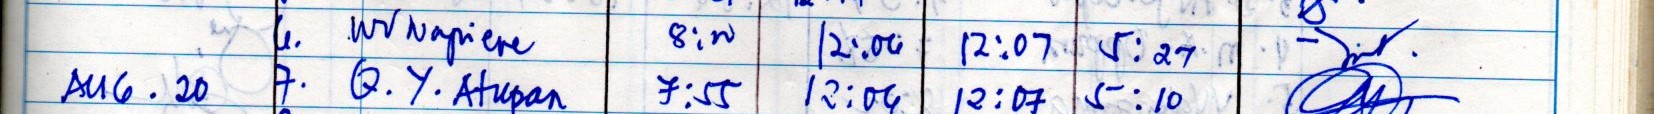 6. WV Napiere 8:10 12:06 12:07 5:27
AUG. 20 7. Q. Y. Atupan 7:55 12:06 12:07 5:10